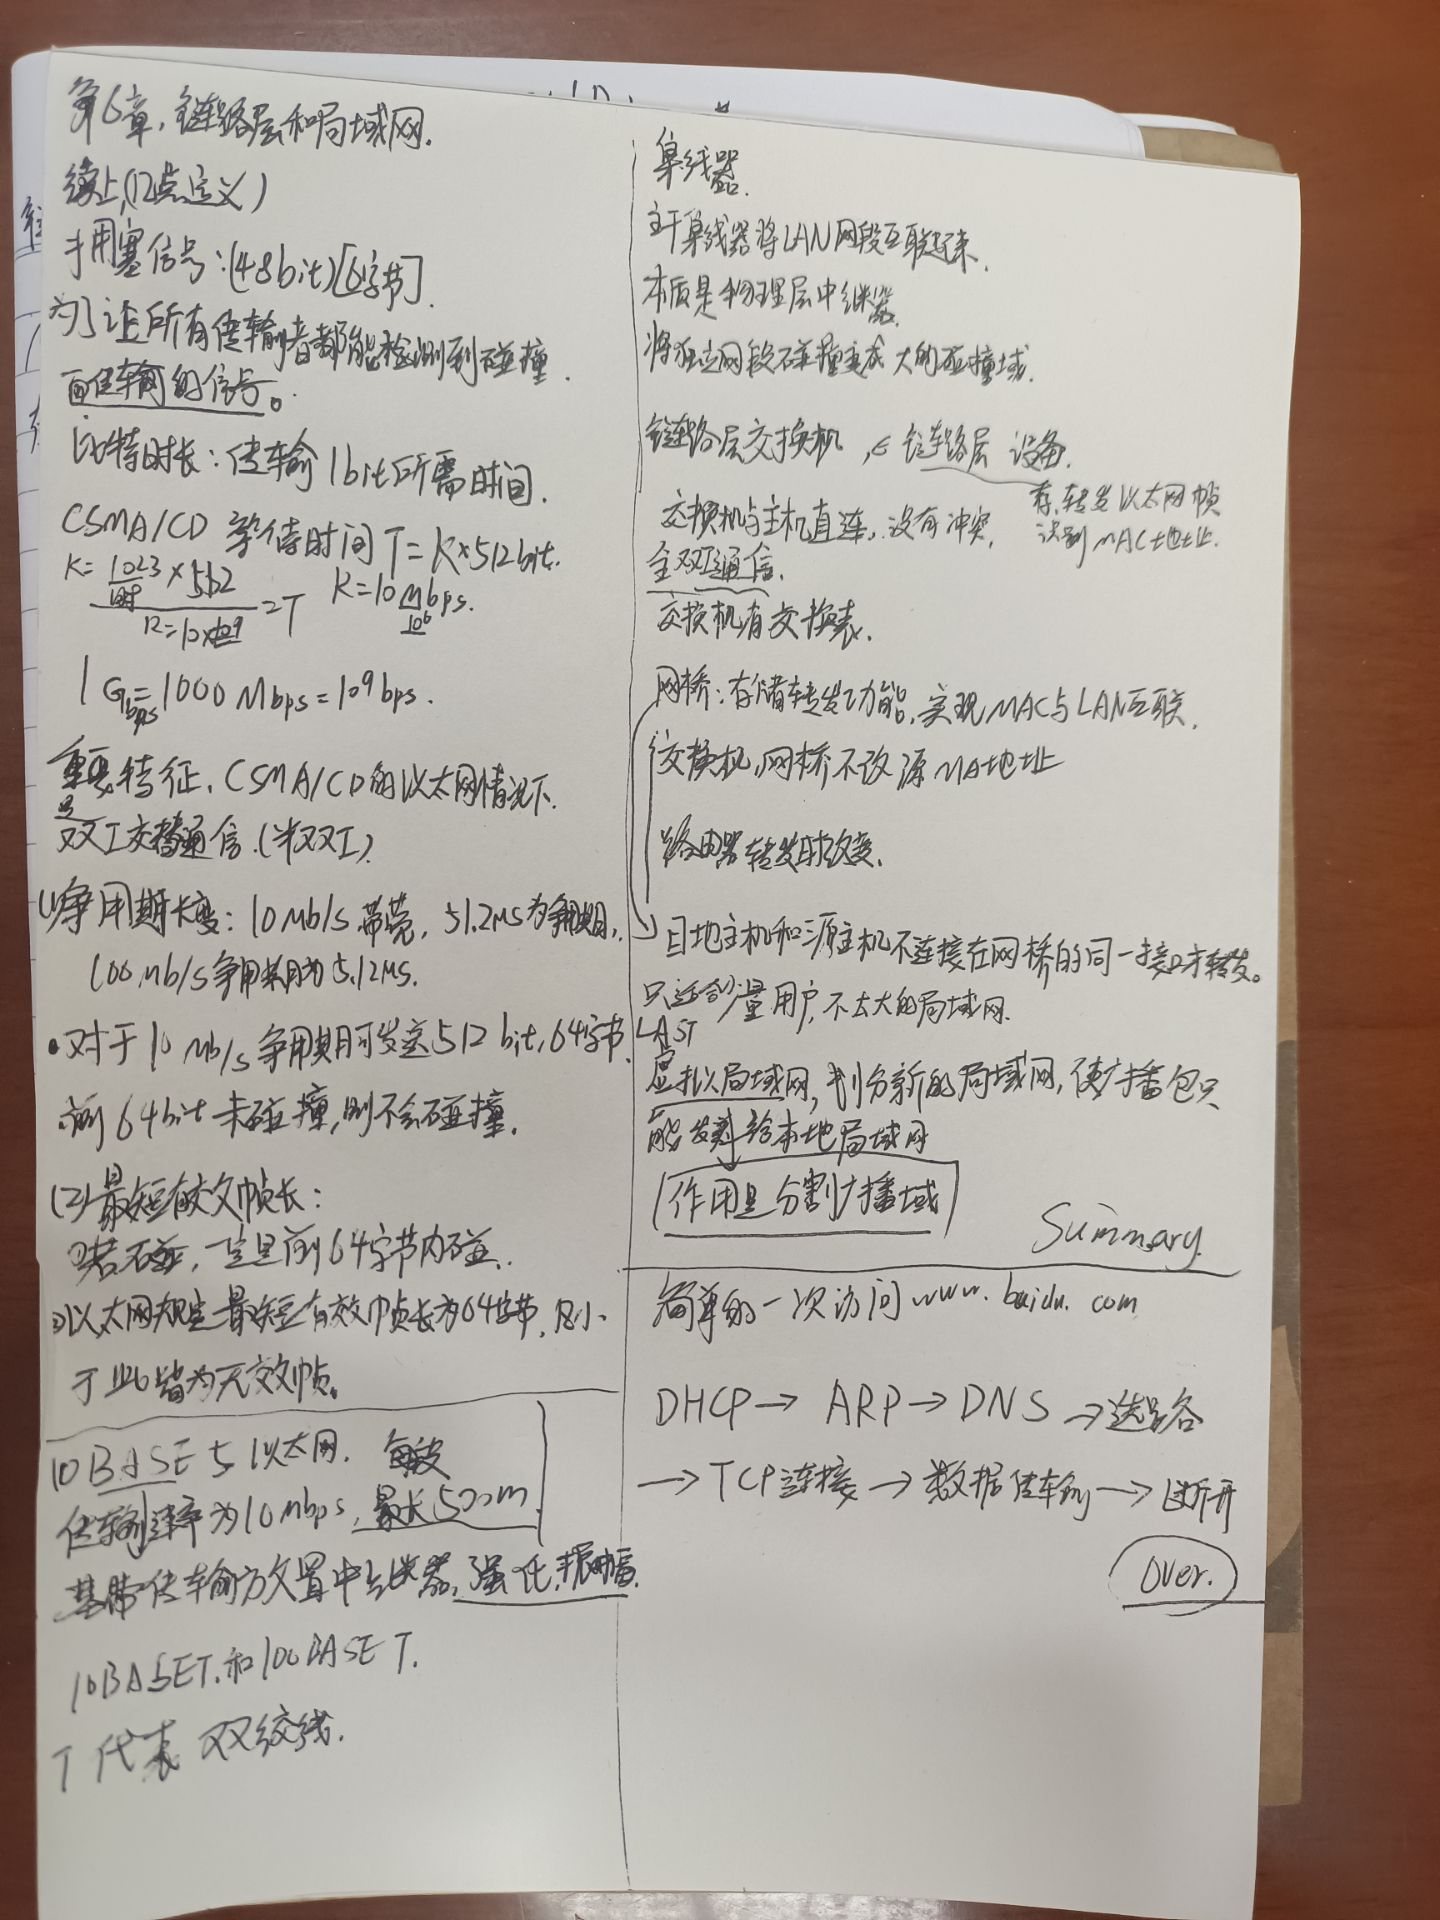 第6章,链路层和局域网.
续上,(12点定义)
拥塞信号:(48bit)[6字节].
为了让所有传输者都能检测到碰撞
而传输的信号。
比特时长:传输1bit所需时间.
CSMA/CD 等待时间T=K×512bit.
K= 1023 × 512
R=10×10⁹ =T R=10Mbps.
10⁶
1Gbps=1000Mbps=10⁹bps.
重要特征,CSMA/CD的以太网情况下.
是
双工交替通信.(半双工)
(1)争用期长度:10Mb/s带宽,51.2Ms为争用期,
100Mb/s争用期为5.12Ms.
·对于10Mb/s争用期可发送512bit,64字节.
前64bit未碰撞,则不会碰撞.
(2)最短有效帧长:
①若碰,一定是前64字节内碰.
②以太网规定最短有效帧长为64字节,凡小
于 皆为无效帧。
10BASE5以太网. 每段
传输速率为10Mbps,最长500m.
基带传输方 置中继器,强化,振幅.
10BASET.和100BASET.
T代表双绞线.
集线器.
主干集线器将LAN网段互联起来.
本质是物理层中继器.
将独立网段碰撞变成大的碰撞域.
链路层交换机,∈链路层 设备.
存,转发以太网帧
识别MAC地址.
交换机与主机直连,没有冲突,
全双工通信.
交换机有交换表.
网桥:存储转发功能,实现MAC与LAN互联.
交换机,网桥不改源MA地址
路由器转发时改变.
目地主机和源主机不连接在网桥的同一接口才转发。
只适合少量用户,不太大的局域网.
LAST
虚拟局域网,划分新的局域网,使广播包只
能发到给本地局域网
作用是分割广播域
Summary.
简单的一次访问www.baidu.com
DHCP→ARP→DNS→选路
→TCP连接→数据传输→断开
over.